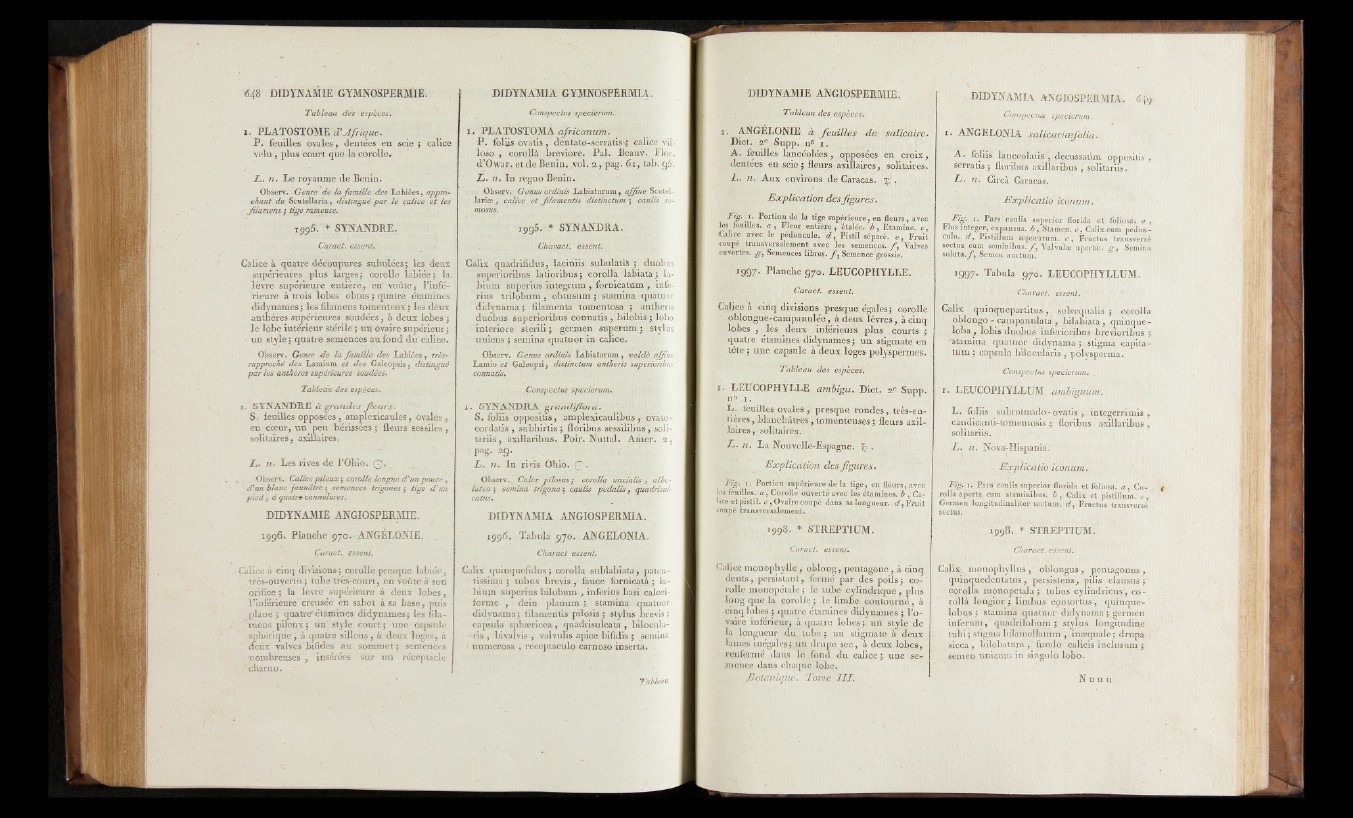 648 DIDYNAMIE GYMNOSPERMIE.
Tableau des espèces.
1. PLATOSTOME d'Afrique.
P. feuilles ovales, dentées en scie ; calice
velu, plus court que la corolle.
L. n. Le royaume de Benin.
Observ. Genre de la famille des Labiées, appro-
chant du Scutellaria, distingué par le calice et les
filamens ; tige rameuse.
1995. * SYNANDRE.
Caract. essent.
Calice à quatre découpures subulées; les deux
supérieures plus larges; corolle labiée; la
lèvre supérieure entière, en voûte, l'infé-
rieure à trois lobes obtus ; quatre étamines
didynames ; les filamens tomenteux ; les deux
anthères supérieures soudées, à deux lobes ;
le lobe intérieur stérile ; un ovaire supérieur ;
un style ; quatre semences au fond du calice.
Observ. Genre de la famille des Labiées, très-
rapproché des Lamium et des Galeopsis, distingué
par les anthères supérieures soudées.
Tableau des espèces.
1. SYNANDRE à grandes fleurs.
S. feuilles opposées, amplexicaules, ovales,
en cœur, un peu hérissées ; fleurs sessiles,
solitaires, axillaires.
L. n. Les rives de l'Ohio.
Observ. Calice pileux ; corolle longue d'un pouce,
d'un blanc jaunâtre ; semences trigones ; tige d'un
pied, à quatre cannelures.
DIDYNAMIE ANGIOSPERMIE.
1996. Planche 970. ANGÉLONIE.
Caract. essent.
Calice à cinq divisions ; corolle presque labiée,
très-ouverte ; tube très-court, en voûte à son
orifice ; la lèvre supérieure à deux lobes,
l'inférieure creusée en sabot à sa base, puis
plane ; quatre étamines didynames ; les fila-
mens pileux ; un style court ; une capsule
sphérique, à quatre sillons, à deux loges, à
deux valves bifides au sommet ; semences
nombreuses, insérées sur un réceptacle
charnu.
DIDYNAMIA GYMNOSPERMIA.
Conspectus specierum.
1. PLATOSTOMA africanum.
P. foliis ovatis, dentato-serratis ; calice vil-
loso, corollâ breviore. Pal. Beauv. Flor.
d'Owar. et de Benin, vol. 2, pag. 61, tab. 95.
L. n. In regno Benin.
Observ. Genus ordinis Labiatarum, affine Scutel-
lariæ, calice et filamentis distinctum ; caulis ra-
mosus.
1995. * SYNANDRA.
Charact. essent.
Calix quadrifidus, laciniis subulatis ; duobus
superioribus latioribus ; corolla labiata ; la-
bium superius integrum, fornicatum, infe-
rius trilobum, obtusum ; stamina quatuor
didynama ; filamenta tomentosa ; antheris
duobus superioribus connatis, bilobis ; lobo
interiore sterili ; germen superum ; stylus
unicus ; semina quatuor in calice.
Observ. Genus ordinis Labiatarum, valdè affine
Lamio et Galeopsi, distinctum antheris superioribus
connatis.
Conspectus specierum.
1. SYNANDRA grandiflora.
S. foliis oppositis, amplexicaulibus, ovato-
cordatis, subhirtis ; floribus sessilibus, soli-
tariis, axillaribus. Poir. Nuttal. Amer. 2,
pag. 29.
L. n. In rivis Ohio.
Observ. Calix pilosus ; corolla uncialis, albo-
lutea ; semina trigona ; caulis pedalis, quadrisul-
catus.
DIDYNAMIA ANGIOSPERMIA.
1996. Tabula 970. ANGELONIA.
Charact essent.
Calix quinquefidus ; corolla sublabiata, paten-
tissima ; tubus brevis, fauce fornicatâ ; la-
bium superius bilobum, inferius basi calcei-
forme, dein planum ; stamina quatuor
didynama ; filamentis pilosis ; stylus brevis ;
capsula sphæricea, quadrisulcata, bilocula-
ris, bivalvis, valvulis apice bifidis ; semina
numerosa, receptaculo carnoso inserta.
Tableau
DIDYNAMIE ANGIOSPERMIE.
Tableau des espèces.
1. ANGÉLONIE à feuilles de salicaire.
Dict. 2e Supp. n° 1.
A. feuilles lancéolées, opposées en croix,
dentées en scie ; fleurs axillaires, solitaires.
L. n. Aux environs de Caracas.
Explication des figures.
Fig. 1. Portion de la tige supérieure, en fleurs, avec
les feuilles. a, Fleur entière, étalée. b, Etamine. c,
Calice avec le pédoncule. d, Pistil séparé. e, Fruit
coupé transversalement avec les semences. f, Valves
ouvertes. g, Semences libres. f, Semence grossie.
1997. Planche 970. LEUCOPHYLLE.
Caract. essent.
Calice à cinq divisions presque égales ; corolle
oblongue-campanulée, à deux lèvres, à cinq
lobes, les deux inférieurs plus courts ;
quatre étamines didynames ; un stigmate en
tête ; une capsule à deux loges polyspermes.
Tableau des espèces.
1. LEUCOPHYLLE ambigu. Dict. 2e Supp.
n° 1.
L. feuilles ovales, presque rondes, très-en-
tières, blanchâtres, tomenteuses ; fleurs axil-
laires, solitaires.
L. n. La Nouvelle-Espagne.
Explication des figures.
Fig. 1. Portion supérieure de la tige, en fleurs, avec
les feuilles. a, Corolle ouverte avec les étamines. b, Ca-
lice et pistil. c, Ovaire coupé dans sa longueur. d, Fruit
coupé transversalement.
1998. * STREPTIUM.
Caract. essent.
Calice monophylle, oblong, pentagone, à cinq
dents, persistant, fermé par des poils ; co-
rolle monopétale ; le tube cylindrique, plus
long que la corolle ; le limbe contourné, à
cinq lobes ; quatre étamines didynames ; l'o-
vaire inférieur, à quatre lobes ; un style de
la longueur du tube ; un stigmate à deux
lames inégales ; un drupe sec, à deux lobes,
renfermé dans le fond du calice ; une se-
mence dans chaque lobe.
Botanique. Tome III.
DIDYNAMIA ANGIOSPERMIA. 649
Conspectus specierum.
1. ANGELONIA salicariæfolia.
A. foliis lanceolatis, decussatim oppositis,
serratis ; floribus axillaribus, solitariis.
L. n. Circà Caracas.
Explicatio iconum.
Fig. 1. Pars caulis superior florida et foliosa. a,
Flos integer, expansus. b, Stamen. c, Calix cum pedun-
culo. d, Pistillum separatum. e, Fructus transversè
sectus cum seminibus. f, Valvulæ apertæ. g, Semina
soluta. f, Semen auctum.
1997. Tabula 970. LEUCOPHYLLUM.
Charact. essent.
Calix quinquepartitus, subæqualis ; corolla
oblongo-campanulata, bilabiata, quinque-
loba, lobis duobus inferioribus brevioribus ;
stamina quatuor didynama ; stigma capita-
tum ; capsula bilocularis, polysperma.
Conspectus specierum.
1. LEUCOPHYLLUM ambiguum.
L. foliis subrotundo-ovatis, integerrimis,
candicanti-tomentosis ; floribus axillaribus,
solitariis.
L. n. Nova-Hispania.
Explicatio iconum.
Fig. 1. Pars caulis superior florida et foliosa. a, Co-
rolla aperta cum staminibus. b, Calix et pistillum. c,
Germen longitudinaliter sectum. d, Fructus transversè
sectus.
1998. * STREPTIUM.
Charact. essent.
Calix monophyllus, oblongus, pentagonus,
quinquedentatus, persistens, pilis clausus ;
corolla monopetala ; tubus cylindricus, co-
rollâ longior ; limbus contortus, quinque-
lobus ; stamina quatuor didynama ; germen
inferum, quadrilobum ; stylus longitudine
tubi ; stigma bilamellatum, inæquale ; drupa
sicca, bilobatum, fundo calicis inclusum ;
semen unicum in singulo lobo.
Nnnn